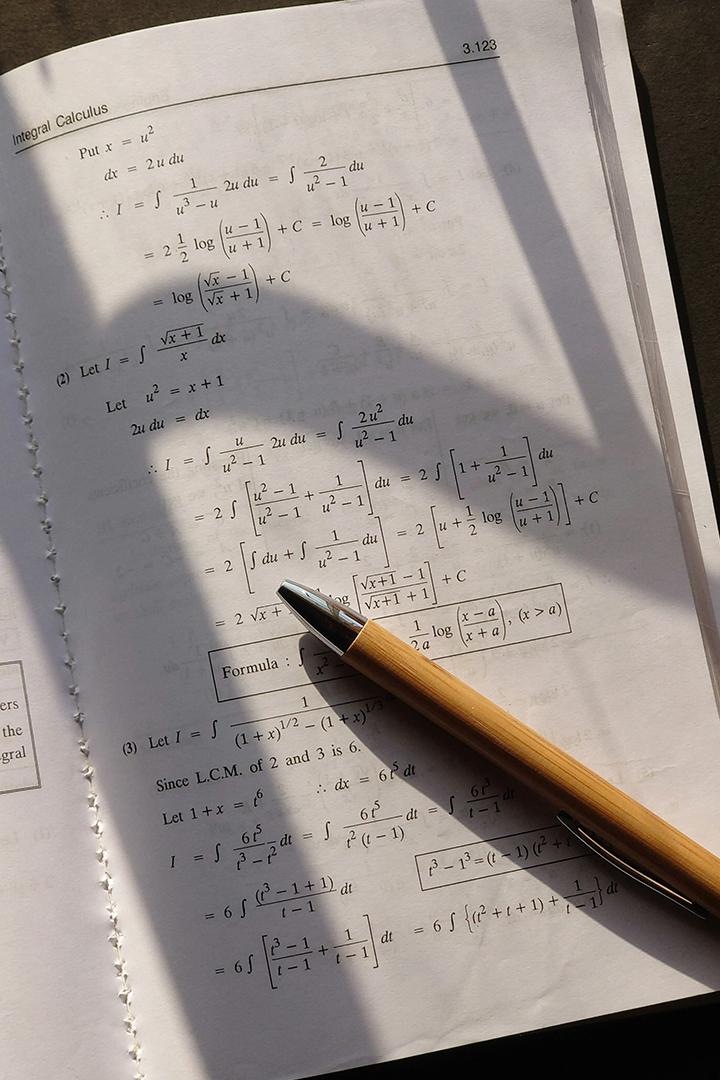 3.123
Integral Calculus
Put x = u²
dx = 2u du
∴ I = ∫ 1/(u³ − u) 2u du = ∫ 2/(u² − 1) du
= 2 1/2 log ((u − 1)/(u + 1)) + C = log ((u − 1)/(u + 1)) + C
= log ((√x − 1)/(√x + 1)) + C
(2) Let I = ∫ √(x + 1)/x dx
Let u² = x + 1
2u du = dx
∴ I = ∫ u/(u² − 1) 2u du = ∫ 2u²/(u² − 1) du
= 2 ∫ [(u² − 1)/(u² − 1) + 1/(u² − 1)] du = 2 ∫ [1 + 1/(u² − 1)] du
= 2 [∫ du + ∫ 1/(u² − 1) du] = 2 [u + 1/2 log ((u − 1)/(u + 1))] + C
= 2 √x + log [(√x+1 − 1)/(√x+1 + 1)] + C
Formula : ∫ x² 1/2a log ((x − a)/(x + a)), (x > a)
(3) Let I = ∫ 1/((1 + x)^1/2 − (1 + x)^1/3
Since L.C.M. of 2 and 3 is 6.
Let 1 + x = t⁶ ∴ dx = 6t⁵ dt
I = ∫ 6t⁵/(t³ − t²) dt = ∫ 6t⁵/(t² (t − 1)) dt = ∫ 6t³/(t − 1) dt
= 6 ∫ (t³ − 1 + 1)/(t − 1) dt
t³ − 1³ = (t − 1) (t² + t
= 6 ∫ [(t³ − 1)/(t − 1) + 1/(t − 1)] dt = 6 ∫ {(t² + t + 1) + 1/(t − 1)} dt
ers
the
gral